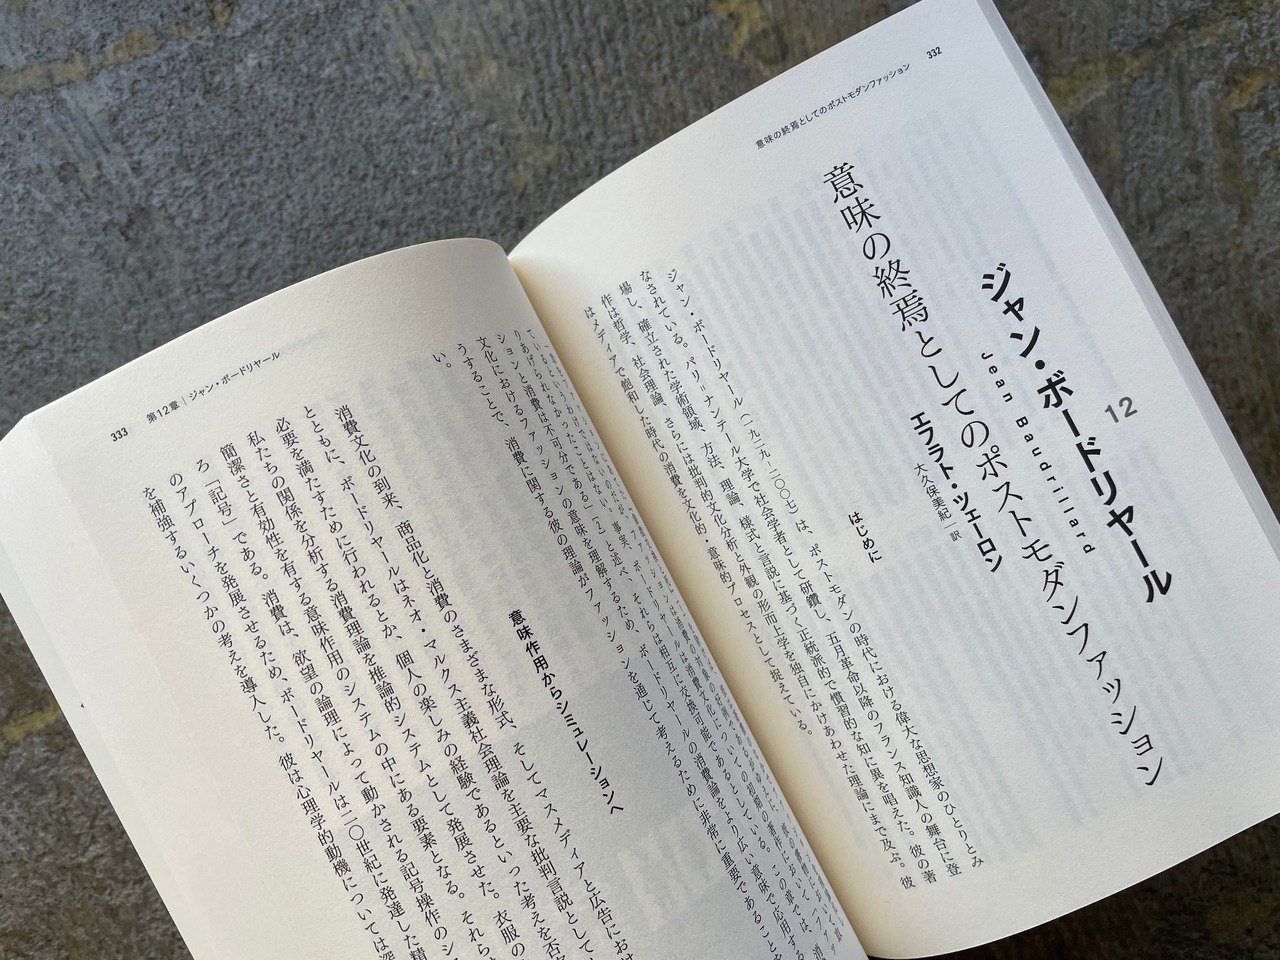 332
意味の終焉としてのポストモダンファッション
12
ジャン・ボードリヤール
Jean Baudrillard
意味の終焉としてのポストモダンファッション
エフラト・ツェーロン
大久保美紀｜訳
はじめに
ジャン・ボードリヤール（一九二九-二〇〇七）は、ポストモダンの時代における偉大な思想家のひとりとみ
なされている。パリ＝ナンテール大学で社会学者として研鑽し、五月革命以降のフランス知識人の舞台に登
場し、確立された学術領域、方法、理論、様式と言説に基づく正統派的で慣習的な知に異を唱えた。彼の著
作は哲学、社会理論、さらには批判的文化分析と外観の形而上学を独自にかけあわせた理論にまで及ぶ。彼
はメディアで飽和した時代の消費を文化的・意味的プロセスとして捉えている。
333
第12章｜ジャン・ボードリヤール
りあげられなかったことはない」と述べ、
ションと消費は不可分である
文化におけるファッションの意味を理解するため、ボードリヤールの消費論をより広い意味で応用する
うすることで、消費に関する彼の理論がファッションを通じて考えるために非常に重要であることを
い。
意味作用からシミュレーションへ
消費文化の到来、商品化と消費のさまざまな形式、そしてマスメディアと広告におけ
とともに、ボードリヤールはネオ・マルクス主義社会理論を主要な批判言説として
必要を満たすために行われるとか、個人の楽しみの経験であるといった考えを否
私たちの関係を分析する消費理論を推論的システムとして発展させた。衣服の
簡潔さと有効性を有する意味作用のシステムの中にある要素となる。それら
ろ「記号」である。消費は、欲望の論理によって動かされる記号操作のシ
のアプローチを発展させるため、ボードリヤールは二〇世紀に発達した精
を補強するいくつかの考えを導入した。彼は心理学的動機については深